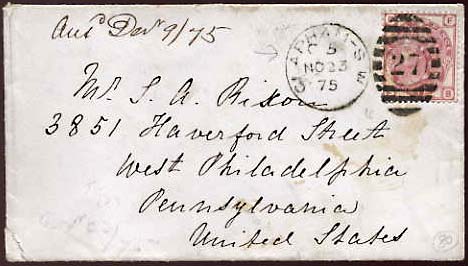 Ansd Decr 9/75
CLAPHAM-S.W
C 5
NO 23
75
27
F
B
Mr. S. A. Rixon
3851 Haverford Street
West Philadelphia
Pennsylvania
United States